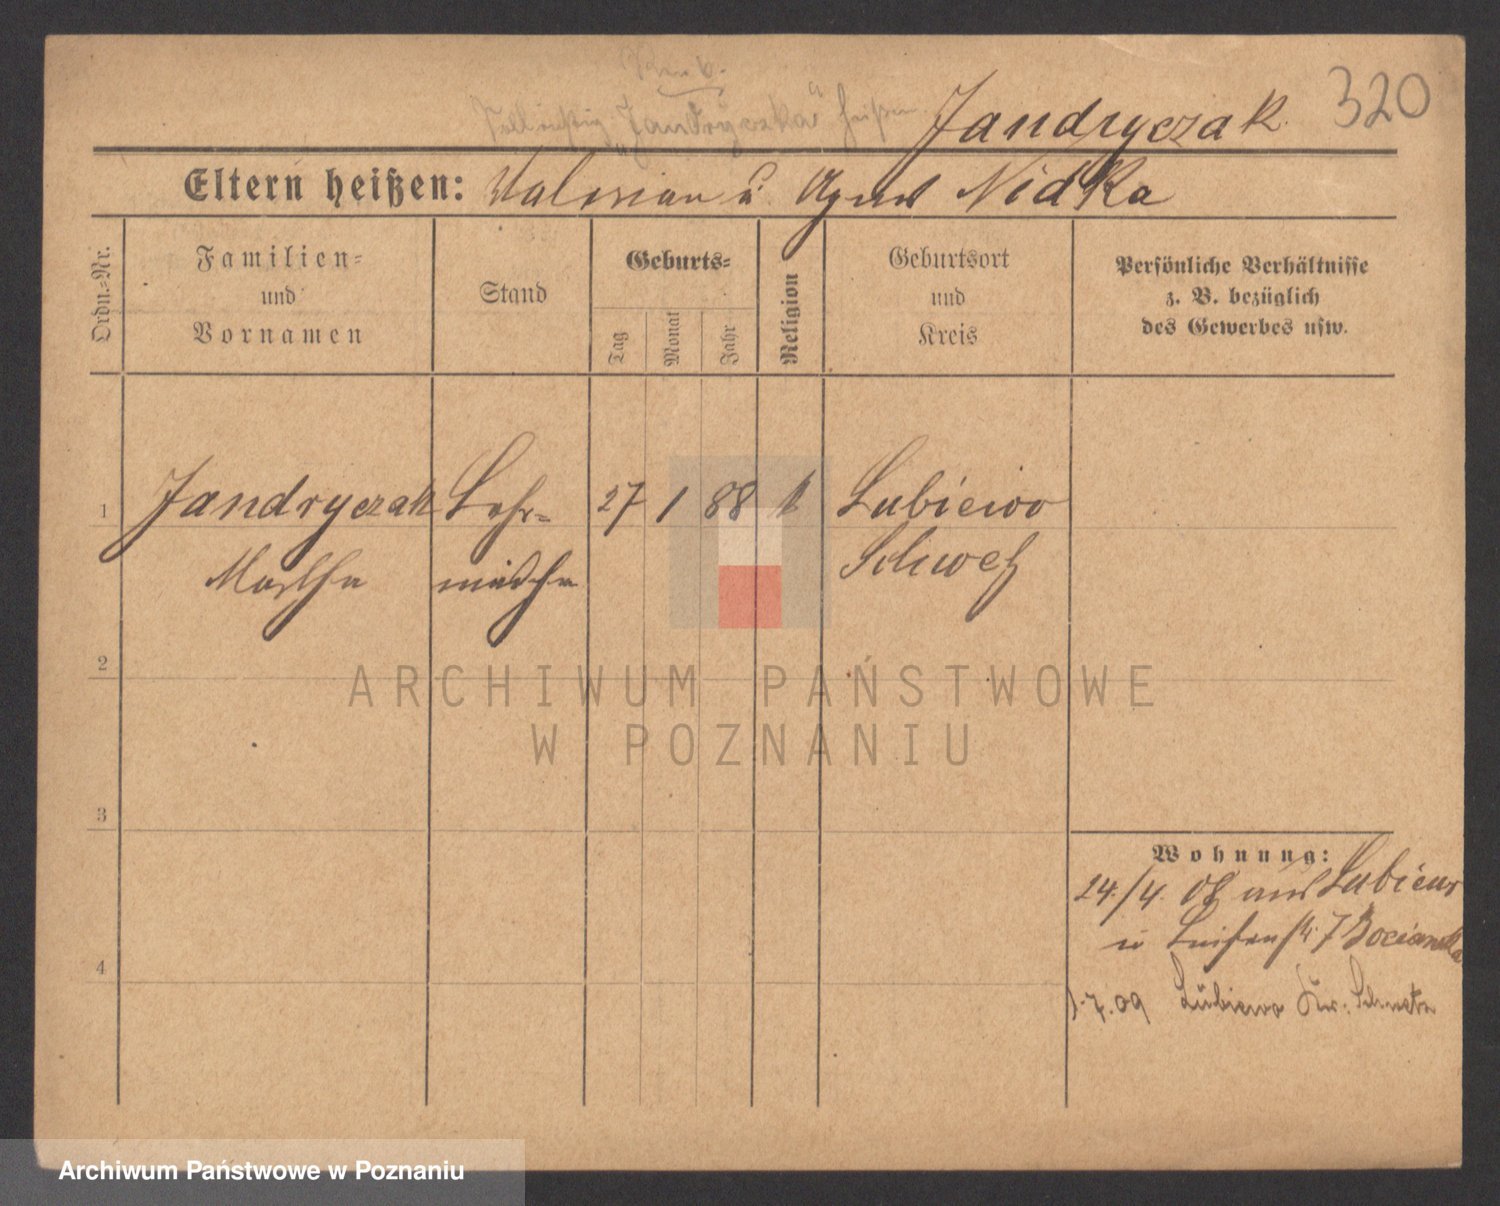 320
"Jandryczka"
Jandryczak
Eltern heißen: Valerian u. Agnes Nidka
Ordn.=Nr.
Familien=
und
Vornamen
Stand
Geburts=
Tag
Monat
Jahr
Religion
Geburtsort
und
Kreis
Persönliche Verhältnisse
z. B. bezüglich
des Gewerbes usw.
1 Jandryczak Lehr= 27 1 88 k Lubiewo
Martha mädchen Schwetz
2
3
4
Wohnung:
24./4. 08 aus Lubiewo
7 Bocianska
1.7.09 Lubiewo Kr. Schwetz
ARCHIWUM PAŃSTWOWE
W POZNANIU
Archiwum Państwowe w Poznaniu